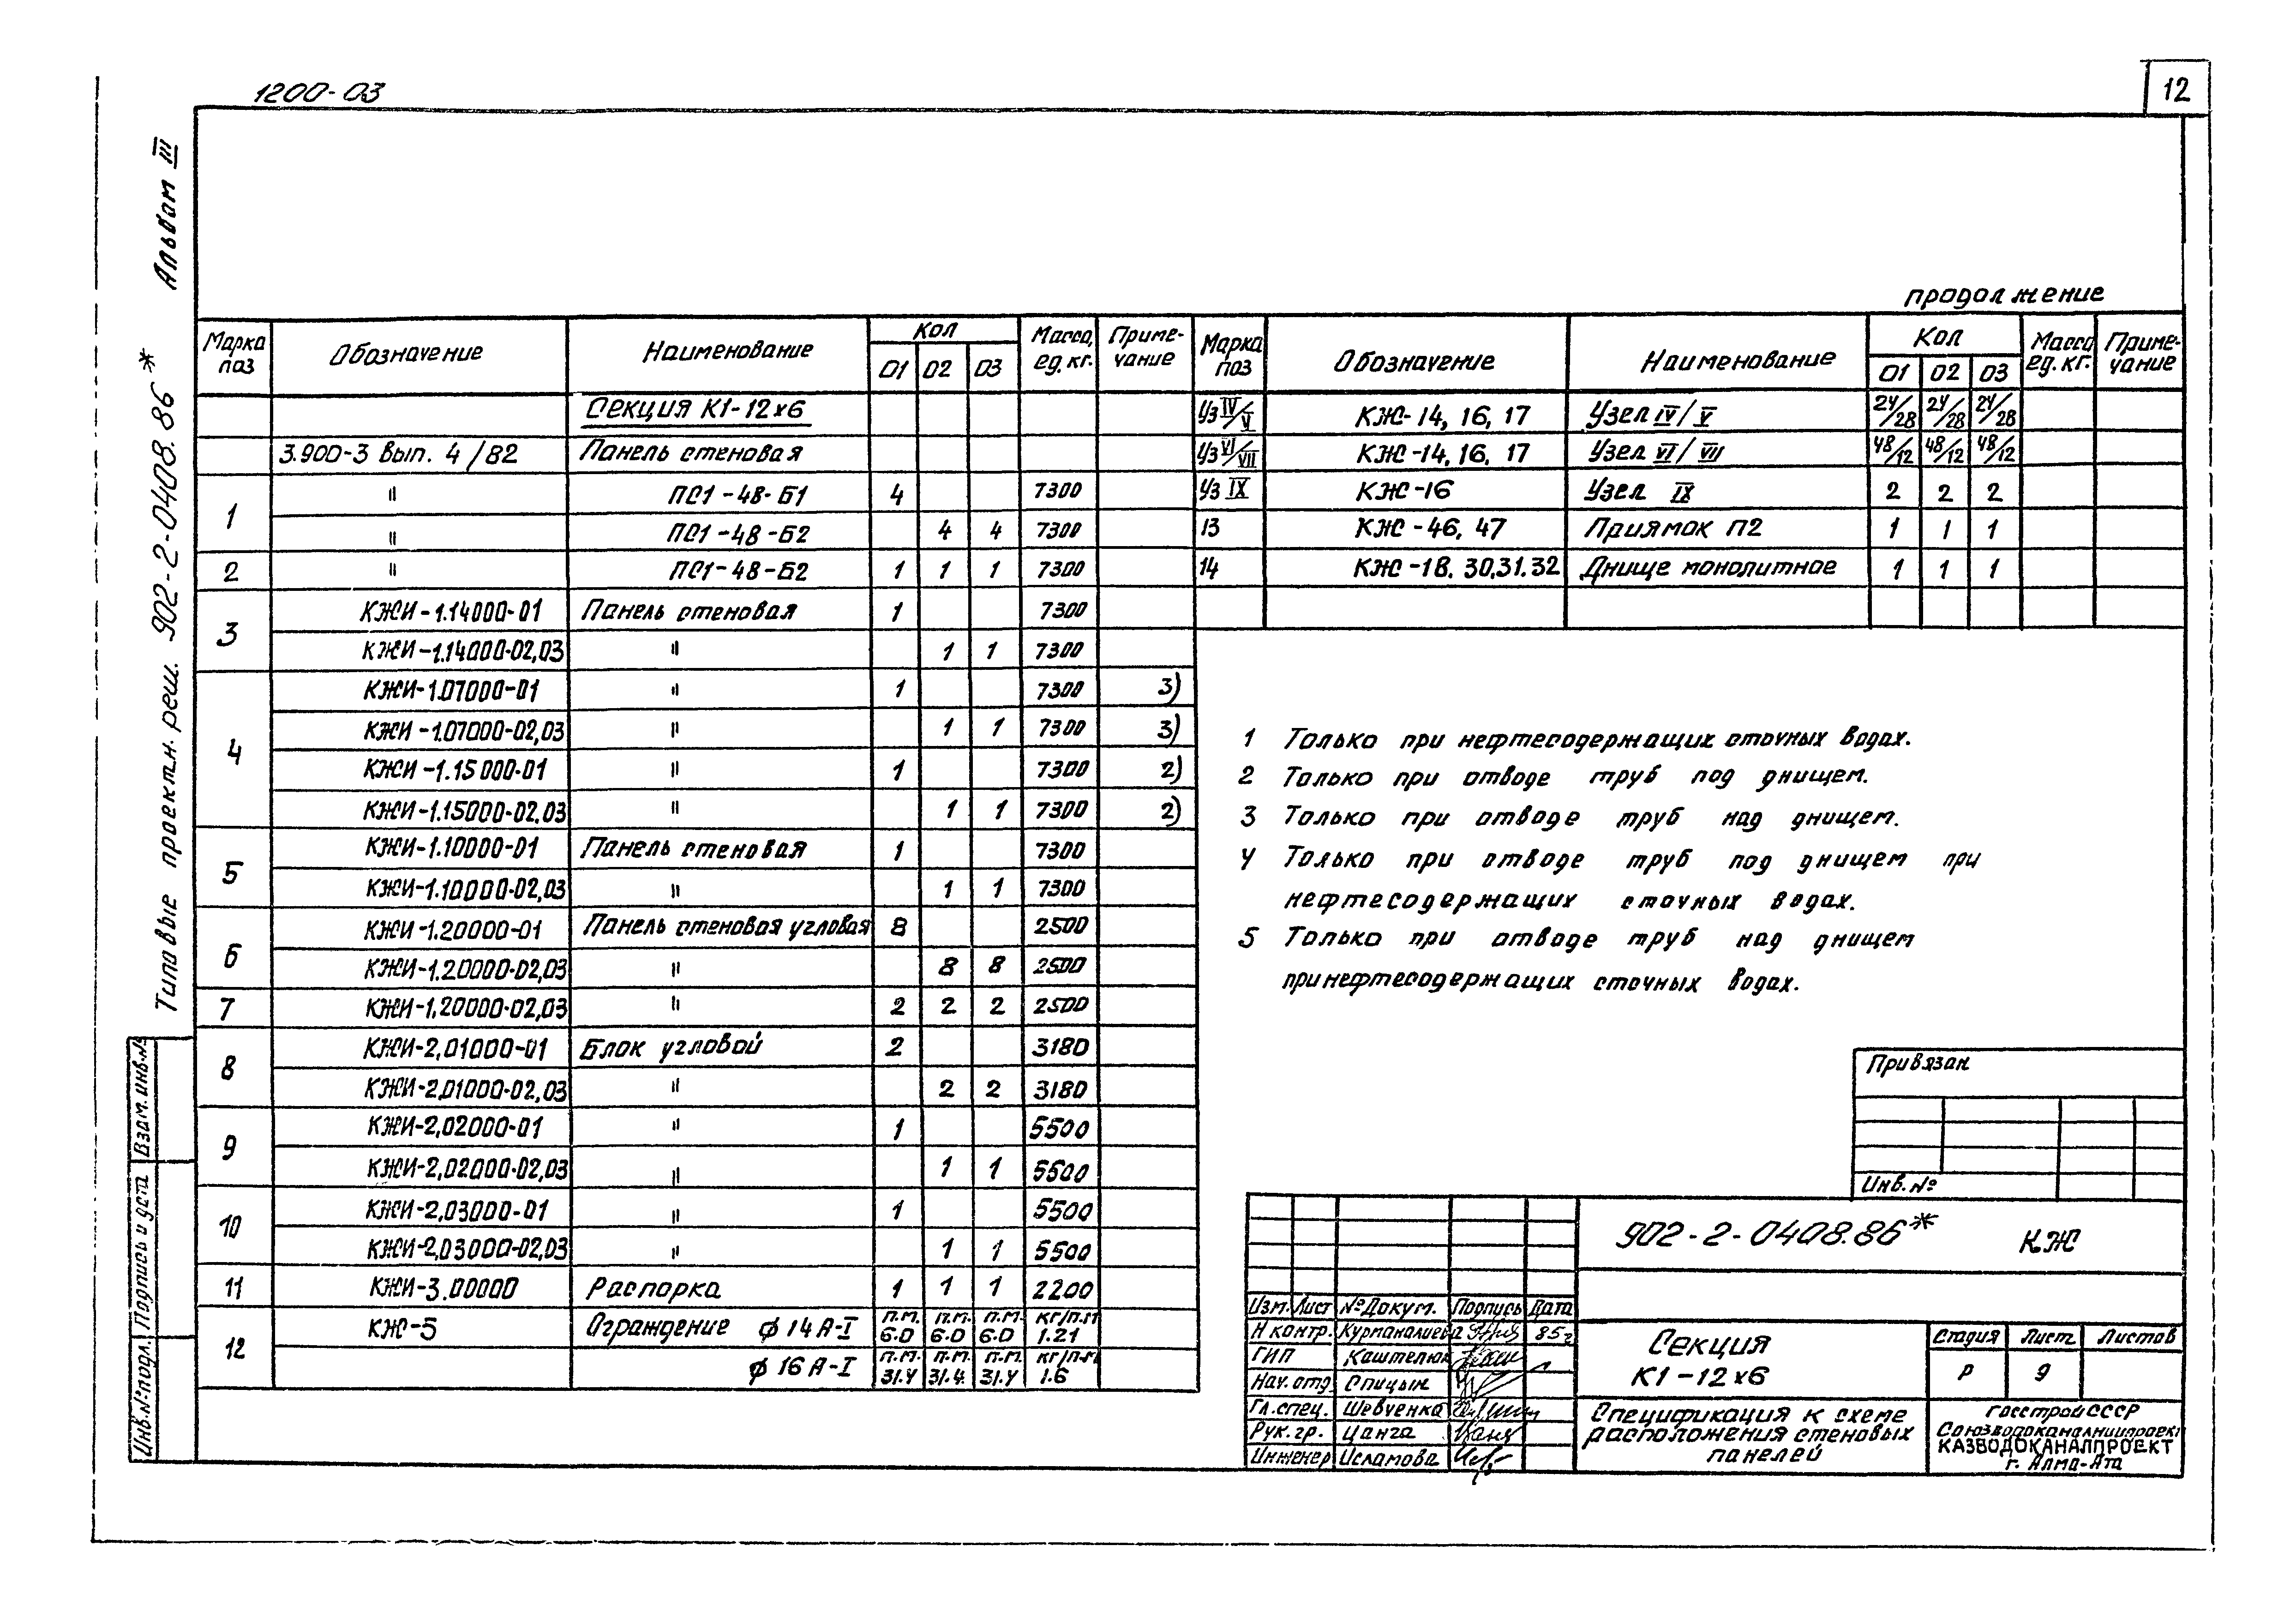 1200-03
12
Альбом III
Типовые проектн. реш. 902-2-0408.86*
продолжение
Марка поз | Обозначение | Наименование | Кол 01 02 03 | Масса, ед. кг. | Приме-чание
Секция К1-12х6
3.900-3 вып. 4/82 Панель стеновая
1 " ПС1-48-Б1 4 7300
" ПС1-48-Б2 4 4 7300
2 " ПС1-48-Б2 1 1 1 7300
3 КЖИ-1.14000-01 Панель стеновая 1 7300
КЖИ-1.14000-02,03 " 1 1 7300
4 КЖИ-1.07000-01 " 1 7300 3)
КЖИ-1.07000-02,03 " 1 1 7300 3)
КЖИ-1.15000-01 " 1 7300 2)
КЖИ-1.15000-02.03 " 1 1 7300 2)
5 КЖИ-1.10000-01 Панель стеновая 1 7300
КЖИ-1.10000-02,03 " 1 1 7300
6 КЖИ-1.20000-01 Панель стеновая угловая 8 2500
КЖИ-1.20000-02,03 " 8 8 2500
7 КЖИ-1,20000-02,03 " 2 2 2 2500
8 КЖИ-2,01000-01 Блок угловой 2 3180
КЖИ-2,01000-02,03 " 2 2 3180
9 КЖИ-2,02000-01 " 1 5500
КЖИ-2,02000-02,03 " 1 1 5500
10 КЖИ-2,03000-01 " 1 5500
КЖИ-2,03000-02,03 " 1 1 5500
11 КЖИ-3.00000 Распорка 1 1 1 2200
12 КЖ-5 Ограждение ϕ14 А-I п.м. 6.0 п.м. 6.0 п.м. 6.0 кг/п.м 1.21
ϕ16 А-I п.м. 31.4 п.м. 31.4 п.м. 31.4 кг/п.м 1.6
Марка поз | Обозначение | Наименование | Кол 01 02 03 | Масса ед. кг. | Приме-чание
Уз IV/V КЖ-14, 16, 17 Узел IV/V 24/28 24/28 24/28
Уз VI/VII КЖ-14, 16, 17 Узел VI/VII 48/12 48/12 48/12
Уз IX КЖ-16 Узел IX 2 2 2
13 КЖ-46, 47 Приямок П2 1 1 1
14 КЖ-18. 30.31.32 Днище монолитное 1 1 1
1 Только при нефтесодержащих сточных водах.
2 Только при отводе труб под днищем.
3 Только при отводе труб над днищем.
4 Только при отводе труб под днищем при
нефтесодержащих сточных водах.
5 Только при отводе труб над днищем
при нефтесодержащих сточных водах.
Привязан
Инв. №
902-2-0408.86* КЖ
Изм. Лист № Докум. Подпись Дата
Н контр. Курманалиева 85г
ГИП Каштелюк
Нач. отд. Спицын
Гл. спец. Шевченко
Рук. гр. Цанга
Инженер Исламова
Секция
К1-12х6
Стадия Лист Листов
Р 9
Спецификация к схеме
расположения стеновых
панелей
Госстрой СССР
Союзводоканалниипроект
КАЗВОДОКАНАЛПРОЕКТ
г. Алма-Ата
Взам. инв. №
Подпись и дата
Инв. № подл.